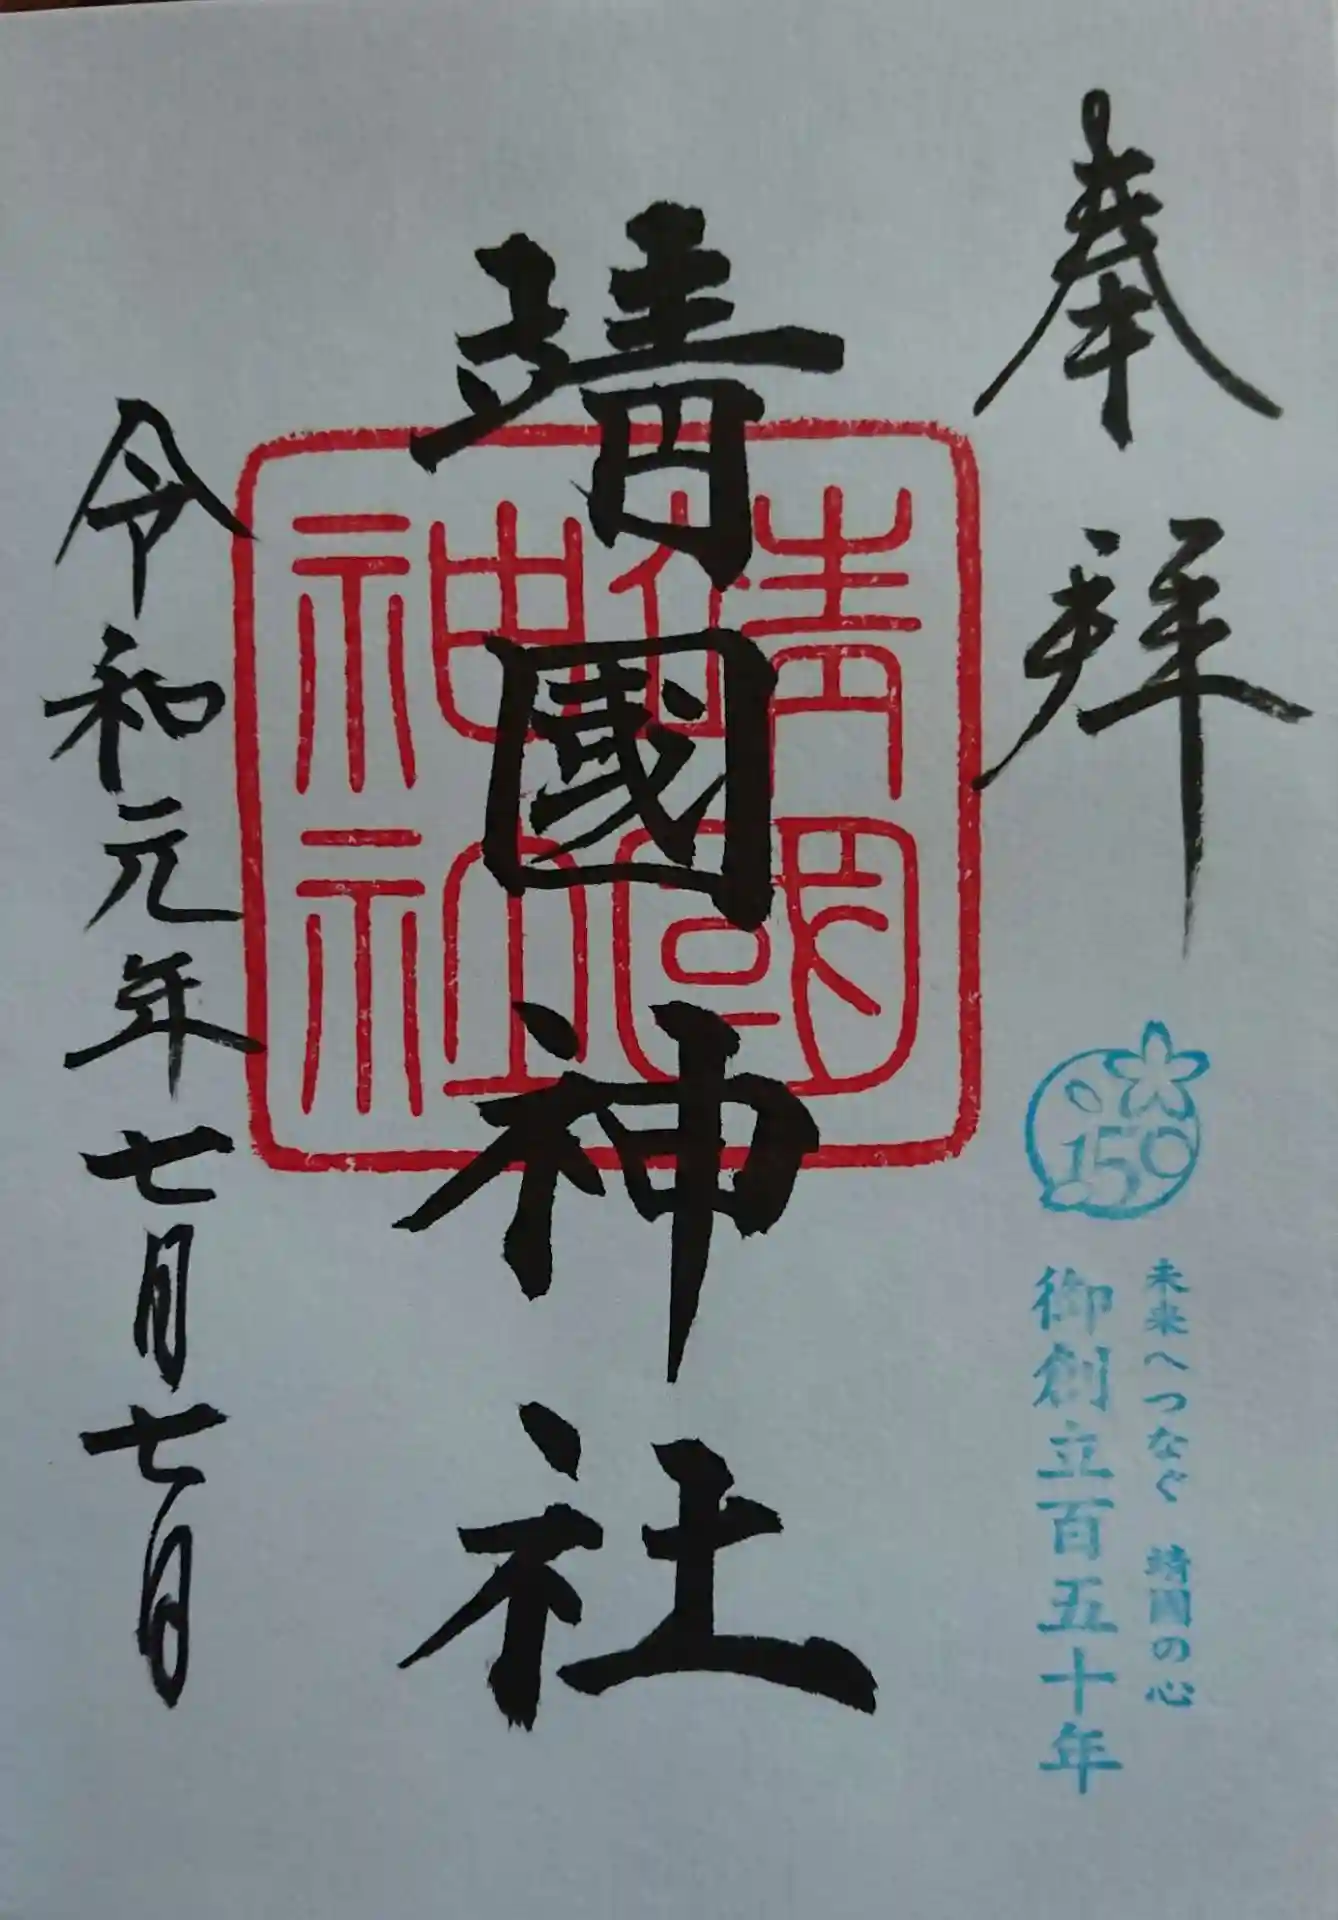 奉拝
150
未来へつなぐ 靖國の心
御創立百五十年
靖國神社
靖國神社
令和元年七月七日